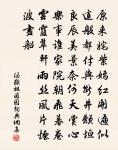 原來姹紫嫣紅開遍似
這般都付與斷井頹垣
良辰美景奈何天賞心
樂事誰家院朝飛暮捲
雲霞翠軒雨絲風片煙
波畫船